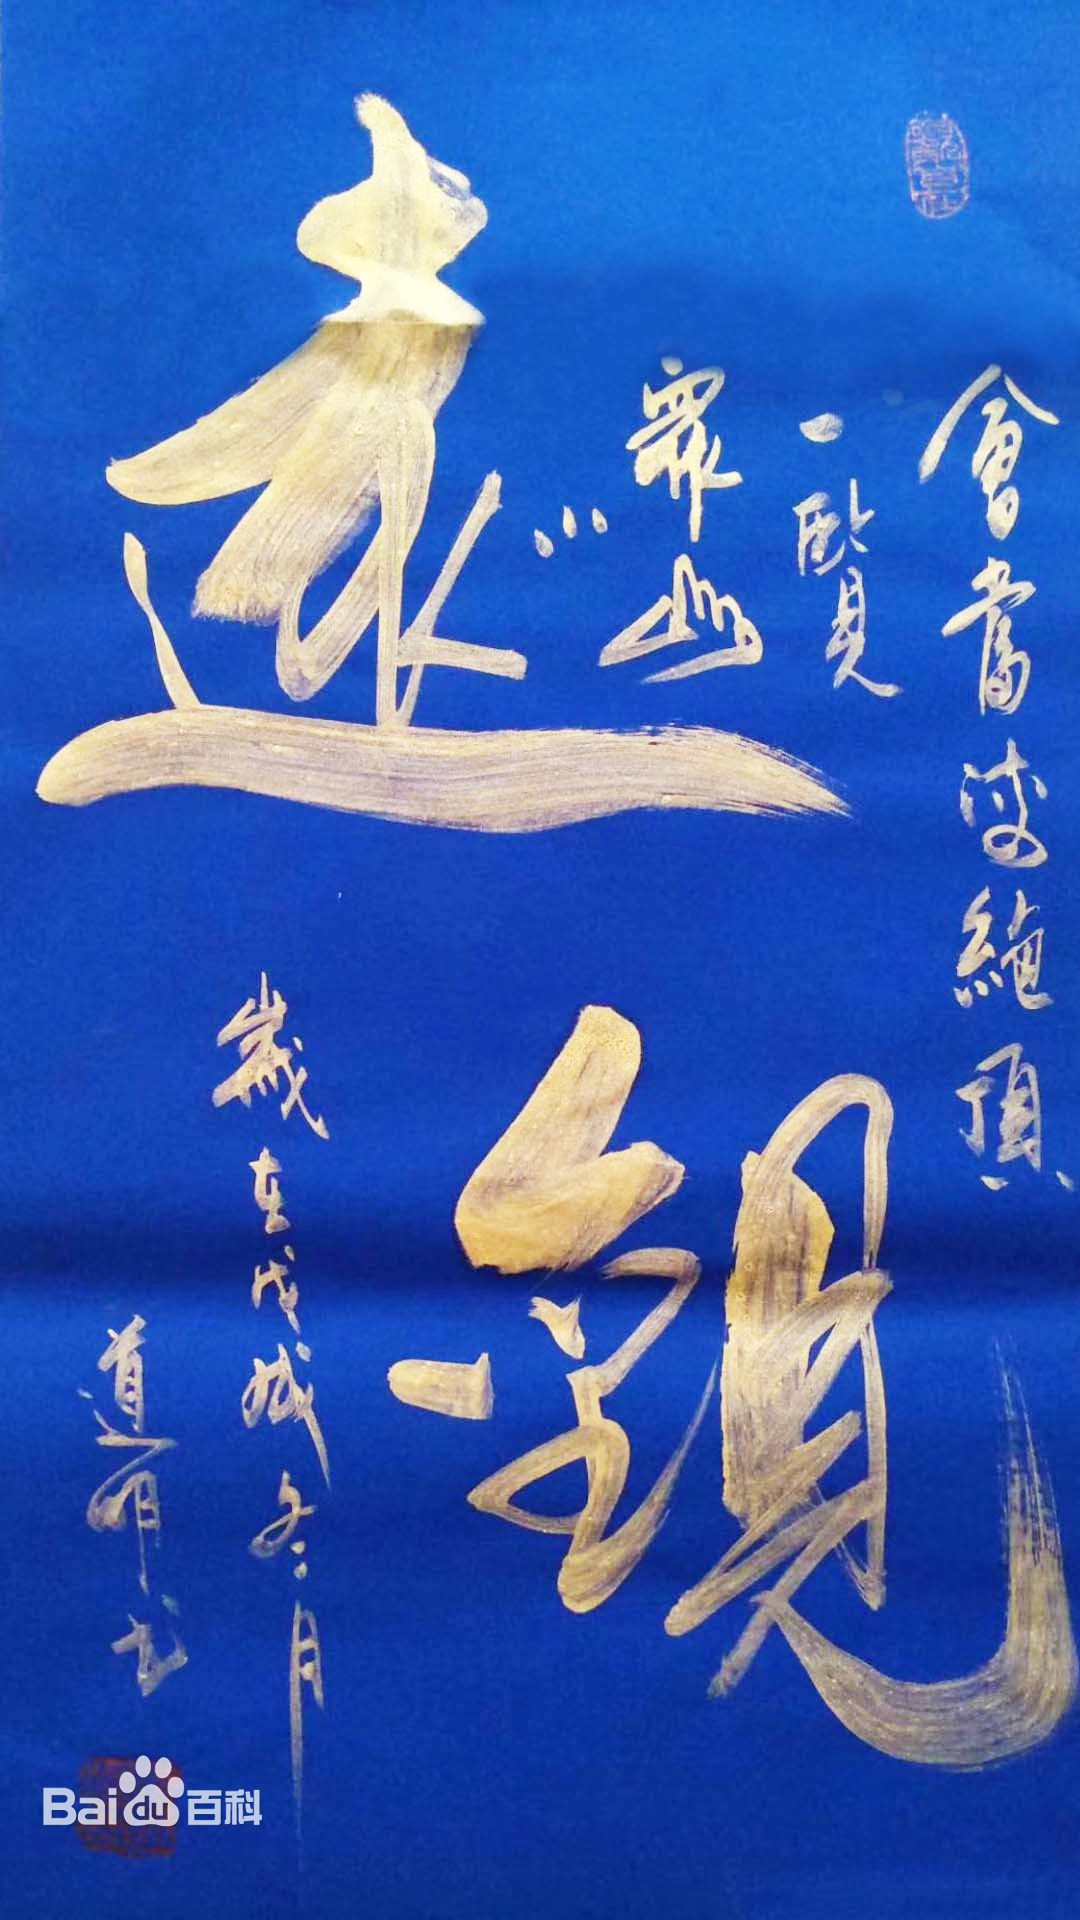 會當淩絶頂
一覽
眾山
小
遠觀
歲在戊戌冬月
道明书
Baidu百科